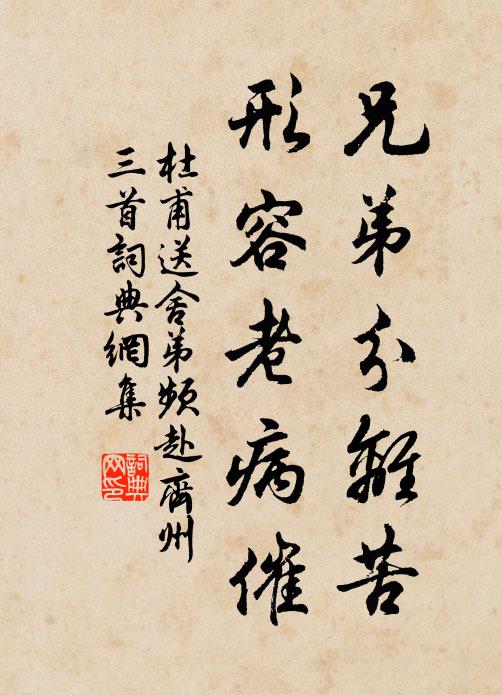 兄弟分離苦
形容老病催
杜甫送舍弟頻赴齊州
三首詞典網集
詞典網印